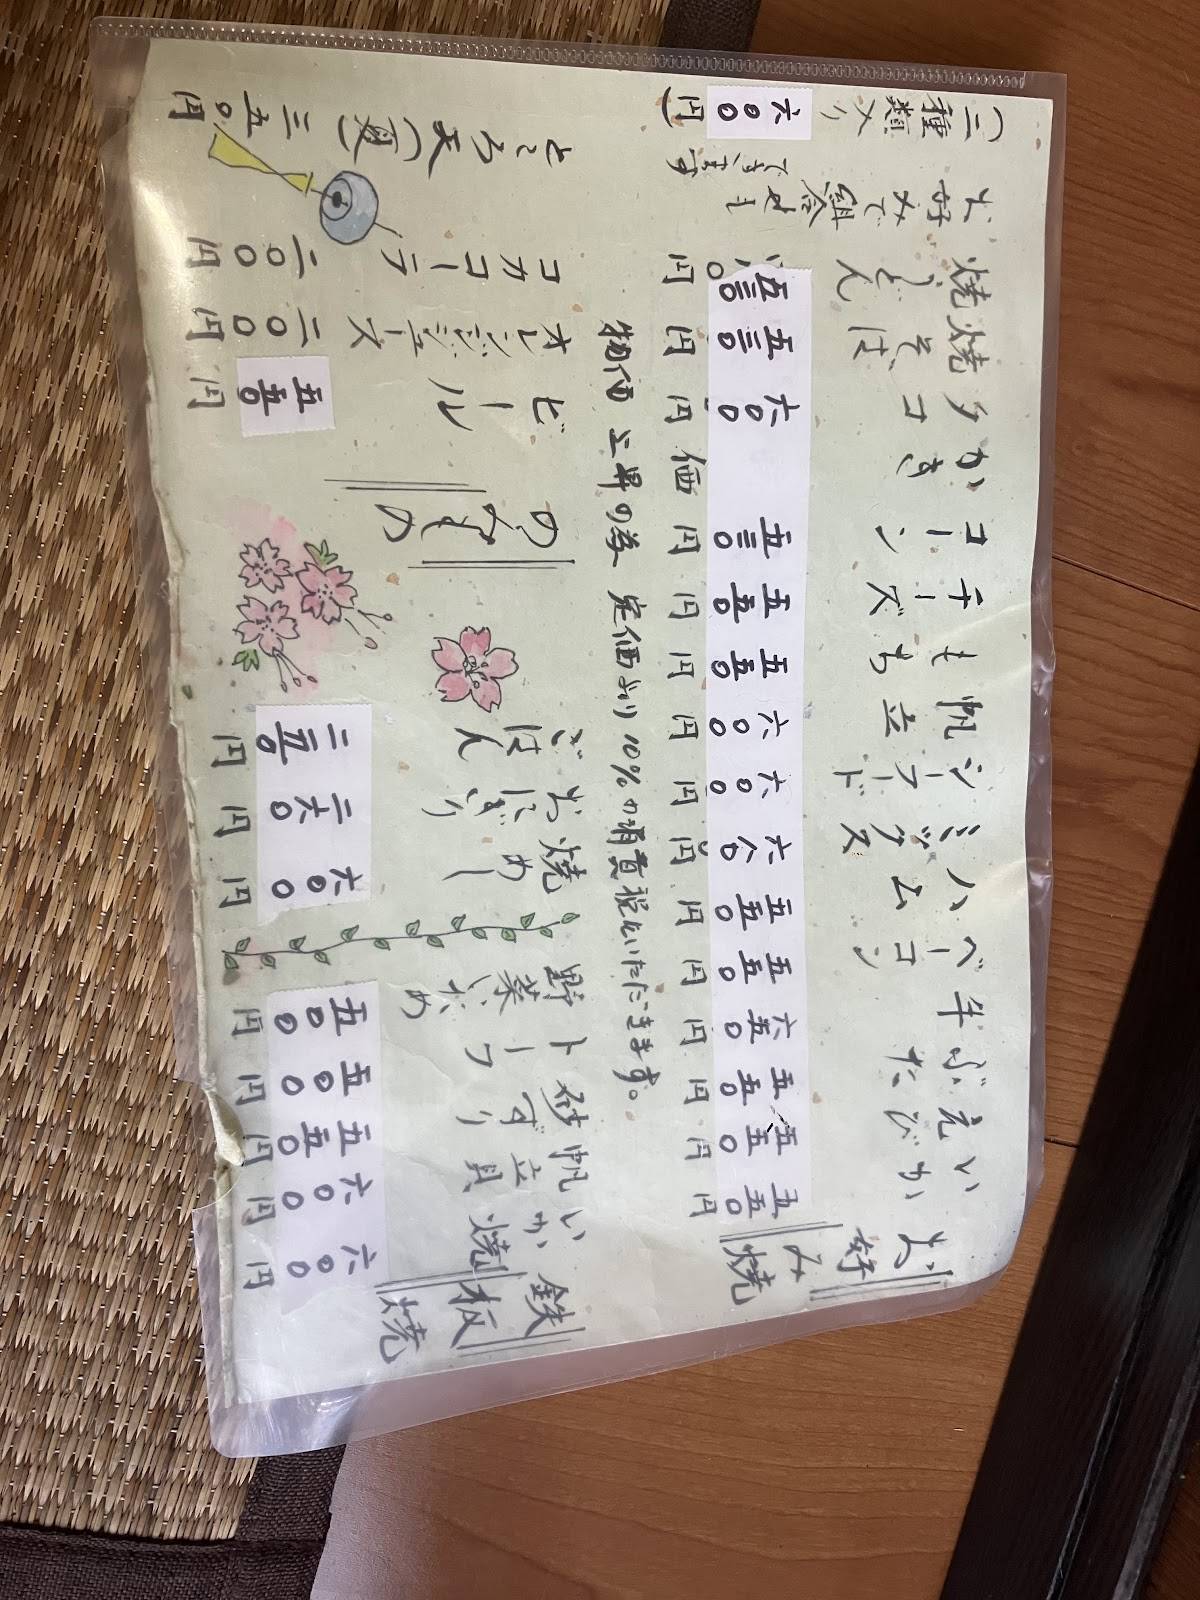 お好み焼
いか 五五〇円
えび 五五〇円
ぶた 五五〇円
牛 六五〇円
ベーコン 五五〇円
ハム 五五〇円
ミックス 六〇〇円
シーフード 六〇〇円
帆立 六〇〇円
もち 五五〇円
チーズ 五五〇円
コーン 五三〇円
かき 価
タコ 六〇〇円
焼そば 五三〇円
焼うどん 五三〇円
お好みで組合せも
できます
(二種類入り
六〇〇円)
物価上昇の為 定価より10%の消費税をいただきます。
鉄板焼
いか焼 六〇〇円
帆立貝 六〇〇円
砂ずり 五五〇円
トーフ 五〇〇円
野菜いため 五〇〇円
焼めし 六〇〇円
おにぎり 二六〇円
ごはん 二五〇円
のみもの
ビール 五五〇円
オレンジジュース 二〇〇円
コカコーラ 二〇〇円
ところ天(夏) 三五〇円